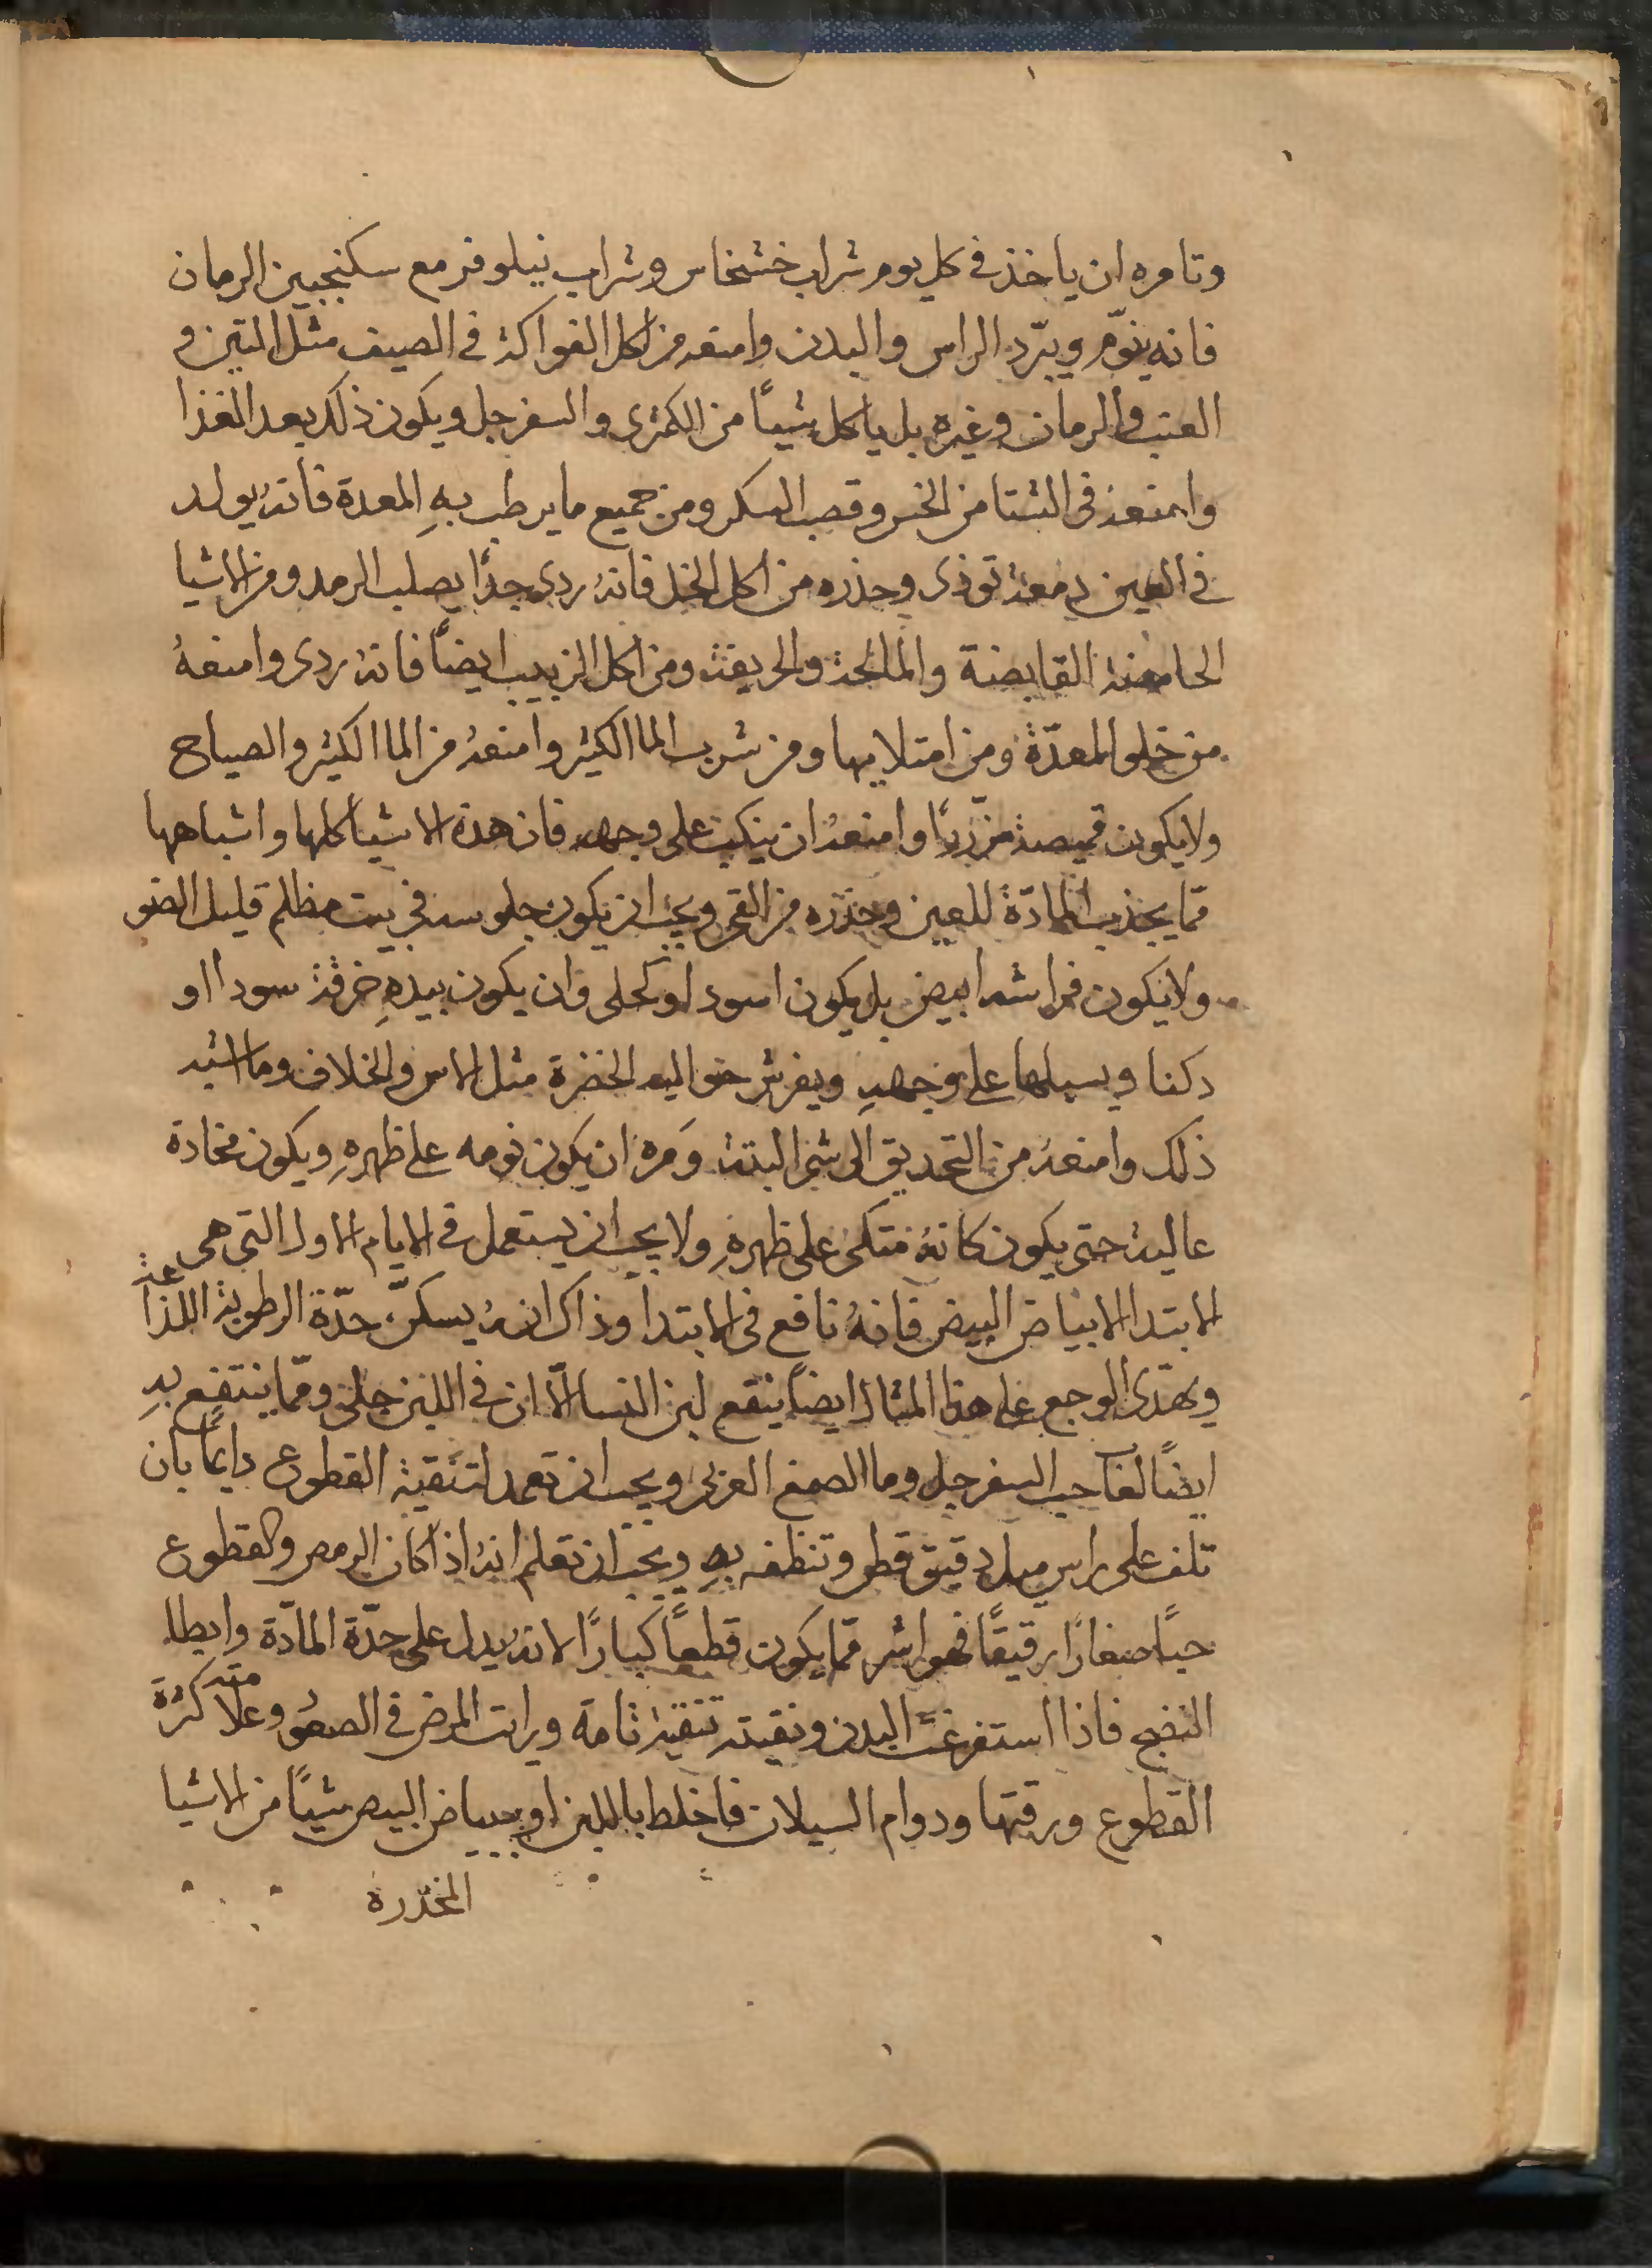 وتامره ان ياخذ في كل يوم شراب خشخاس وشراب نيلوفر مع سكنجبين الرمان
فانه ينوّم ويبرّد الراس والبدن وامنعه من اكل الفواكه في الصيف مثل التين و
العنب والرمان وغيره بل ياكل شياً من الكمثرى والسفرجل ويكون ذلك بعد الغذا
وامنعه في الشتا من الخس وقصب السكر ومن جميع ما يرطب بهِ المعدة فانهُ يولد
في العين دمعة توذى وحذره من اكل الخل فانهُ ردى جدًا يصلب الرمد ومن الاشيا
الحامضة القابضة والمالحة والحريفة ومن اكل الزبيب ايضاً فانهُ ردى وامنعهُ
من خلو المعدّة ومن امتلايها ومن شرب الما الكثير وامنعهُ من الما الكثير والصياح
ولا يكون قميصهُ مزرّرًا وامنعهُ ان ينكب على وجهه فان هذه الاشيا كلها واشباهها
ممّا يجذب المادّة للعين وحذره من القى ويجب ان يكون جلوسه في بيت مظلم قليل الضو
ولا يكون فراشه ابيض بل يكون اسود او كحلى وان يكون بيدهِ خرقة سودا او
دكنا ويسبلها على وجههِ ويفرش حواليه الخضرة مثل الاس والخلاف وما اشبه
ذلك وامنعهُ من التحديق الى شى البتة وَمره ان يكون نومه على ظهرهِ ويكون مخادة
عالية حتى يكون كانهُ متكى على ظهرهِ ولا يجب ان يستعمل في الايام الاول التى هى
الابتدا الا بياض البيض فانهُ نافع في الابتدا وذاك انهُ يسكنّ حدّة الرطوبة اللذاعة
ويهدى الوجع على هذا المثال ايضاً ينفع لبن النسا الّا ان في اللبن جلى وممّا ينتفع بهِ
ايضاً لعاب حب السفرجل وما الصمغ العربى ويجب ان تعمد لتنقية القطوع دايماً بان
تلف على راس ميل دقيق قطن وتنظفه بهِ ويجب ان تعلم انهُ اذا كان الرمص والقطوع
حبًا صغارًا رقيقًا فهو اشر ممّا يكون قطعاً كبارًا لانهُ يدل على حدّة المادّة وابطا
النضج فاذا استفرغت البدن ونقيته تنقيةً تامة ورايت المرض في الصعُو وعلامته كثرة
القطوع ورقتها ودوام السيلان فاخلط باللبن او ببياض البيض شياً من الاشيا
المخدّرة